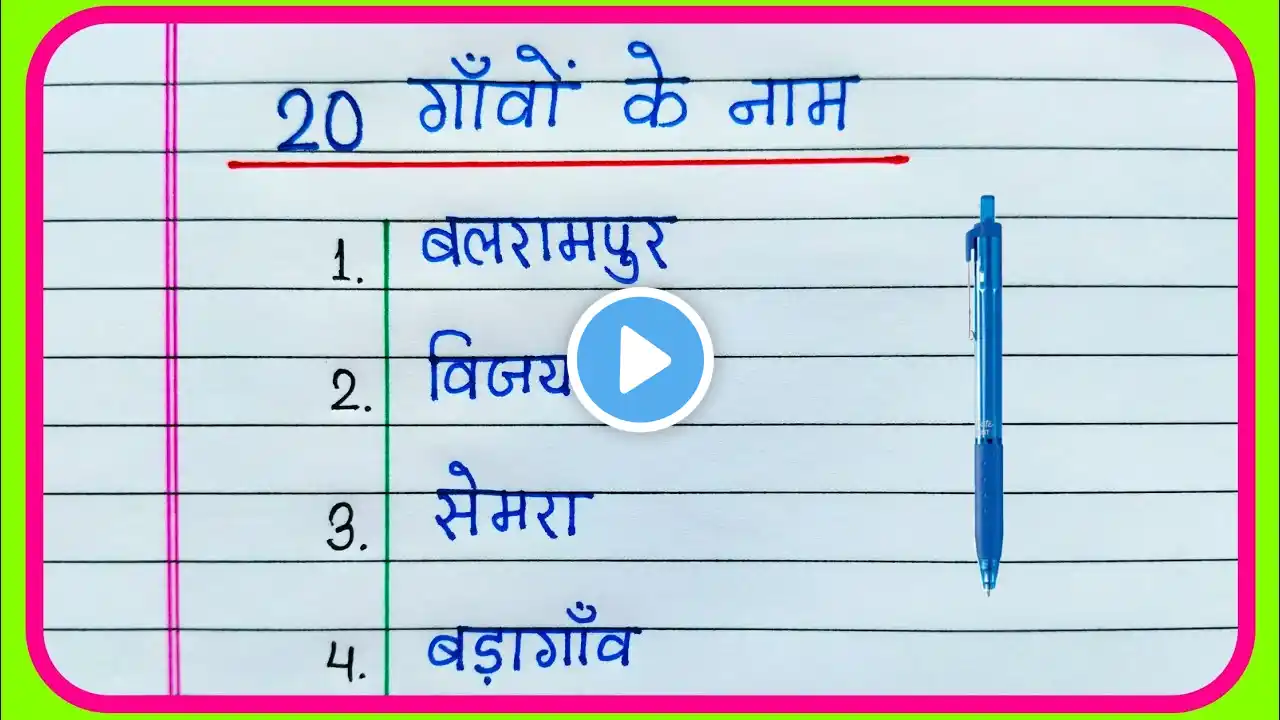 20 गाँवों के नाम
1. बलरामपुर
2. विजय
3. सेमरा
4. बड़ागाँव